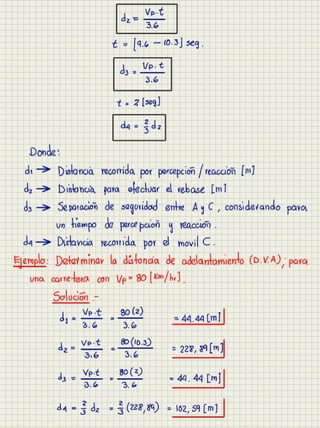 d₂ = Vp.t / 3.6
t = [9.6 – 10.3] seg.
d₃ = Vp.t / 3.6
t = 2 [seg]
d₄ = 2/3 d₂
Donde:
d₁ → Distancia recorrida por percepción / reacción [m]
d₂ → Distancia para efectuar el rebase [m]
d₃ → Separación de seguridad entre A y C, considerando para
un tiempo de percepción y reacción.
d₄ → Distancia recorrida por el movil C.
Ejemplo: Determinar la distancia de adelantamiento (D.V.A), para
una carretera con Vp = 80 [Km/hr].
Solución.-
d₁ = Vp.t / 3.6 = 80(2) / 3.6 = 44.44 [m]
d₂ = Vp.t / 3,6 = 80(10.3) / 3.6 = 228,89 [m]
d₃ = Vp.t / 3.6 = 80(2) / 3.6 = 44.44 [m]
d₄ = 2/3 d₂ = 2/3 (228,89) = 152,59 [m]